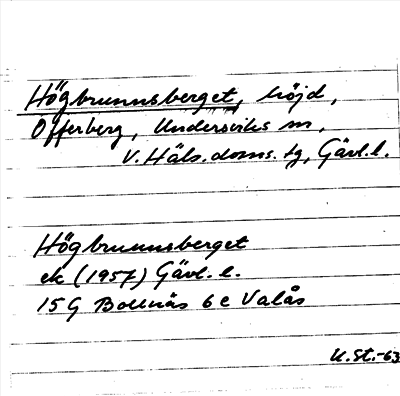 Högbrunnsberget, höjd,
Offerberg, Undersviks sn,
V. Häls. doms. tg, Gävl. l.
Högbrunnsberget
ek (1957) Gävl. l.
15 G Bollnäs 6 e Valås
U. St. -63